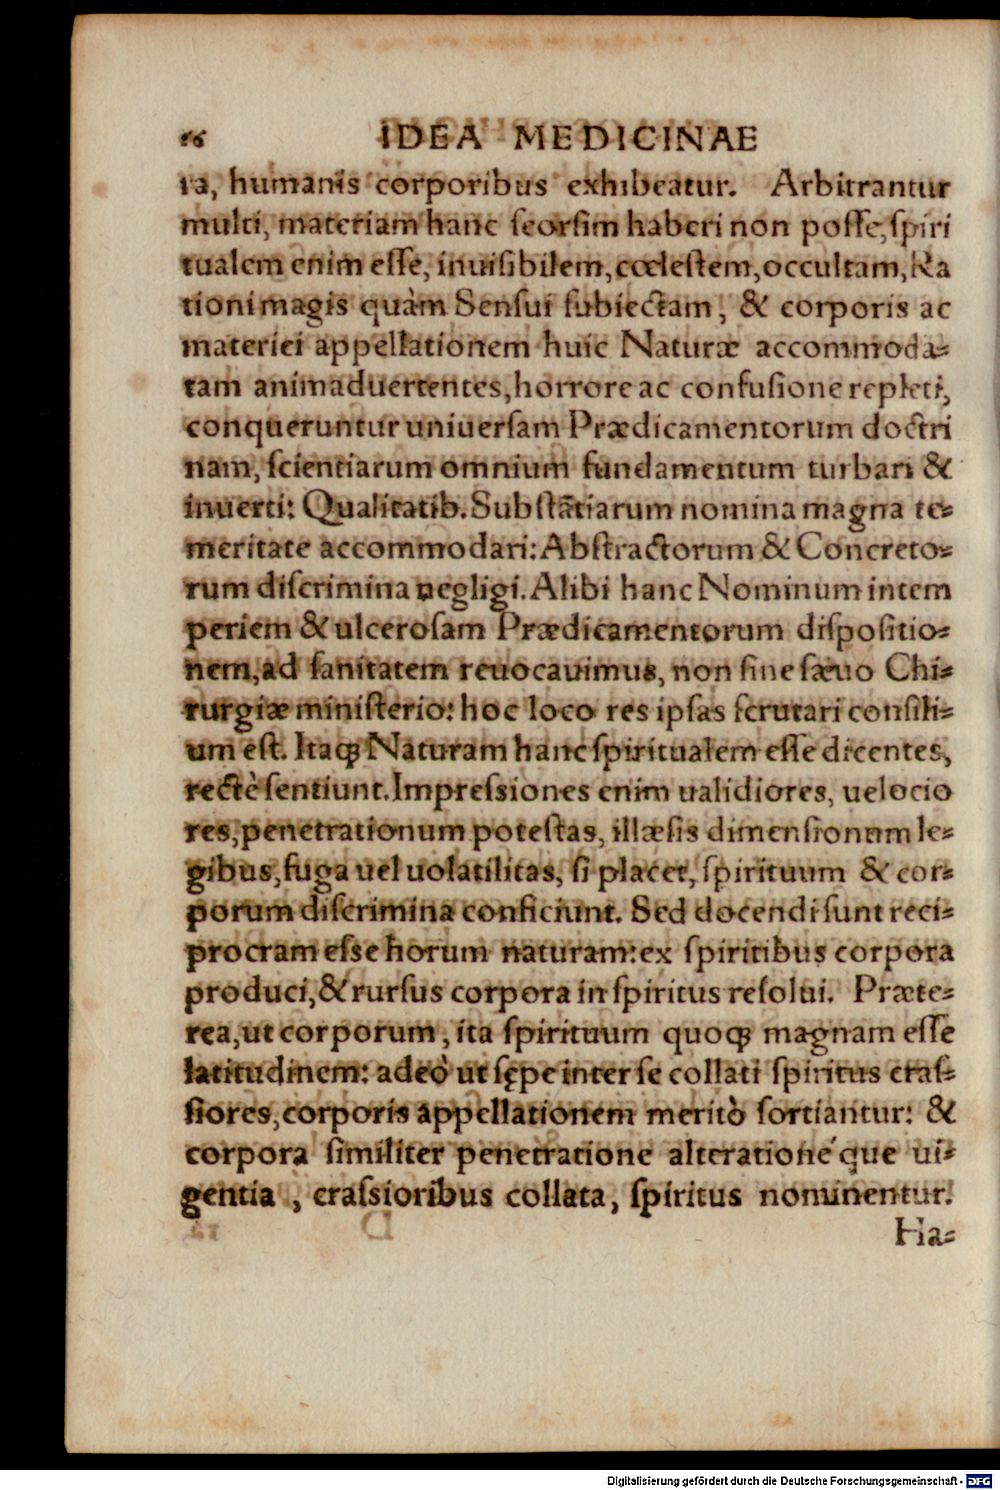 56 IDEA MEDICINAE
ra, humanis corporibus exhibeatur. Arbitrantur
multi, materiam hanc ſeorſim haberi non poſſe, ſpiri
tualem enim eſſe, inuiſibilem, cœleſtem, occultam, Ra
tioni magis quàm Senſui ſubiectam, & corporis ac
materiei appellationem huic Naturæ accommoda-
tam animaduertentes, horrore ac confuſione repleti,
conqueruntur uniuerſam Prædicamentorum doctri
nam, ſcientiarum omnium fundamentum turbari &
inuerti: Qualitatib. Subſtātiarum nomina magna te-
meritate accommodari: Abſtractorum & Concreto-
rum diſcrimina negligi. Alibi hanc Nominum intem
periem & ulceroſam Prædicamentorum diſpoſitio-
nem, ad ſanitatem reuocauimus, non ſine ſæuo Chi-
rurgiæ miniſterio: hoc loco res ipſas ſcrutari conſili-
um eſt. Itaqꝫ Naturam hanc ſpiritualem eſſe dicentes,
rectè ſentiunt. Impreſsiones enim ualidiores, uelocio
res, penetrationum poteſtas, illæſis dimenſionum le-
gibus, fuga uel uolatilitas, ſi placet, ſpirituum & cor-
porum diſcrimina conficiunt. Sed docendi ſunt reci-
procram eſse horum naturam: ex ſpiritibus corpora
produci, & rurſus corpora in ſpiritus reſolui. Præte-
rea, ut corporum, ita ſpirituum quoqꝫ magnam eſſe
latitudinem: adeò ut ſępe inter ſe collati ſpiritus craſ-
ſiores, corporis appellationem meritò ſortiantur: &
corpora ſimiliter penetratione alteratione´que ui-
gentia, craſsioribus collata, ſpiritus nominentur.
Ha-
Digitalisierung gefördert durch die Deutsche Forschungsgemeinschaft - DFG